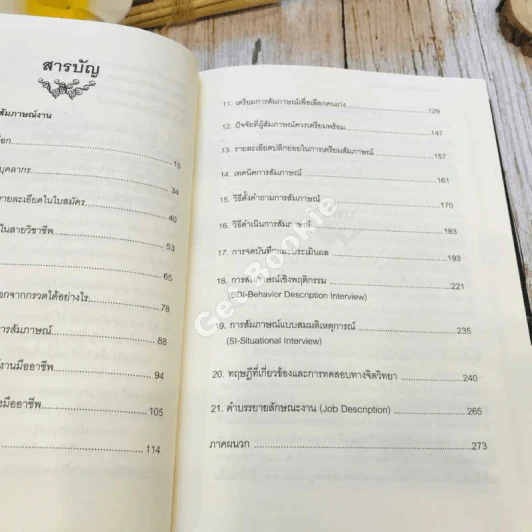 สารบัญ
สัมภาษณ์งาน
15
บุคลากร 34
รายละเอียดในใบสมัคร 40
ในสายวิชาชีพ 53
65
ออกจากกรวดได้อย่างไร 78
การสัมภาษณ์ 88
งานมืออาชีพ 94
มืออาชีพ 105
114
11. เตรียมการสัมภาษณ์เพื่อเลือกคนเก่ง 129
12. ปัจจัยที่ผู้สัมภาษณ์ควรเตรียมพร้อม 147
13. รายละเอียดปลีกย่อยในการเตรียมสัมภาษณ์ 157
14. เทคนิคการสัมภาษณ์ 161
15. วิธีตั้งคำถามการสัมภาษณ์ 170
16. วิธีดำเนินการสัมภาษณ์ 183
17. การจดบันทึกและประเมินผล 193
18. การสัมภาษณ์เชิงพฤติกรรม 221
(BDI-Behavior Description Interview)
19. การสัมภาษณ์แบบสมมติเหตุการณ์ 235
(SI-Situational Interview)
20. ทฤษฎีที่เกี่ยวข้องและการทดสอบทางจิตวิทยา 240
21. คำบรรยายลักษณะงาน (Job Description) 265
ภาคผนวก 273
Get Bookie